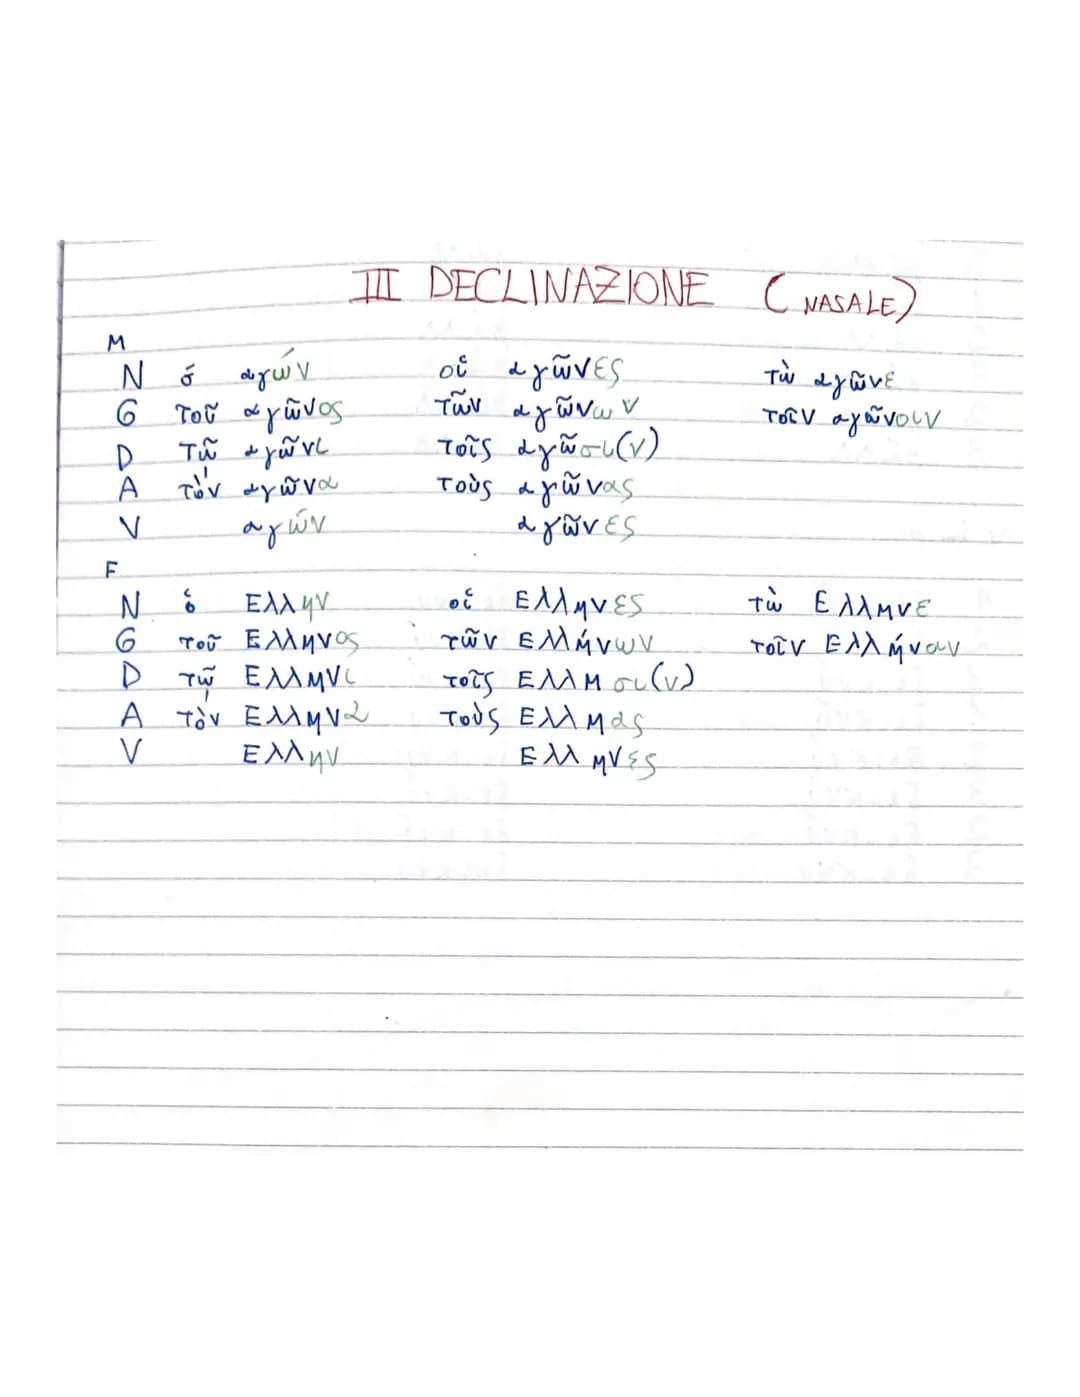 III DECLINAZIONE (NASALE)
M
N ὁ αγών οἱ αγῶνες τὼ αγῶνε
G τοῦ αγῶνος τῶν αγώνων τοῖν αγώνοιν
D τῷ αγῶνι τοῖς αγῶσι(ν)
A τὸν αγῶνα τοὺς αγῶνας
V αγών αγῶνες
F
N ὁ Ελλην οἱ Ελληνες τὼ Ελληνε
G τοῦ Ελληνος τῶν Ελλήνων τοῖν Ελλήνοιν
D τῷ Ελληνι τοῖς Ελλησι(ν)
A τὸν Ελληνα τοὺς Ελληας
V Ελλην Ελληνες